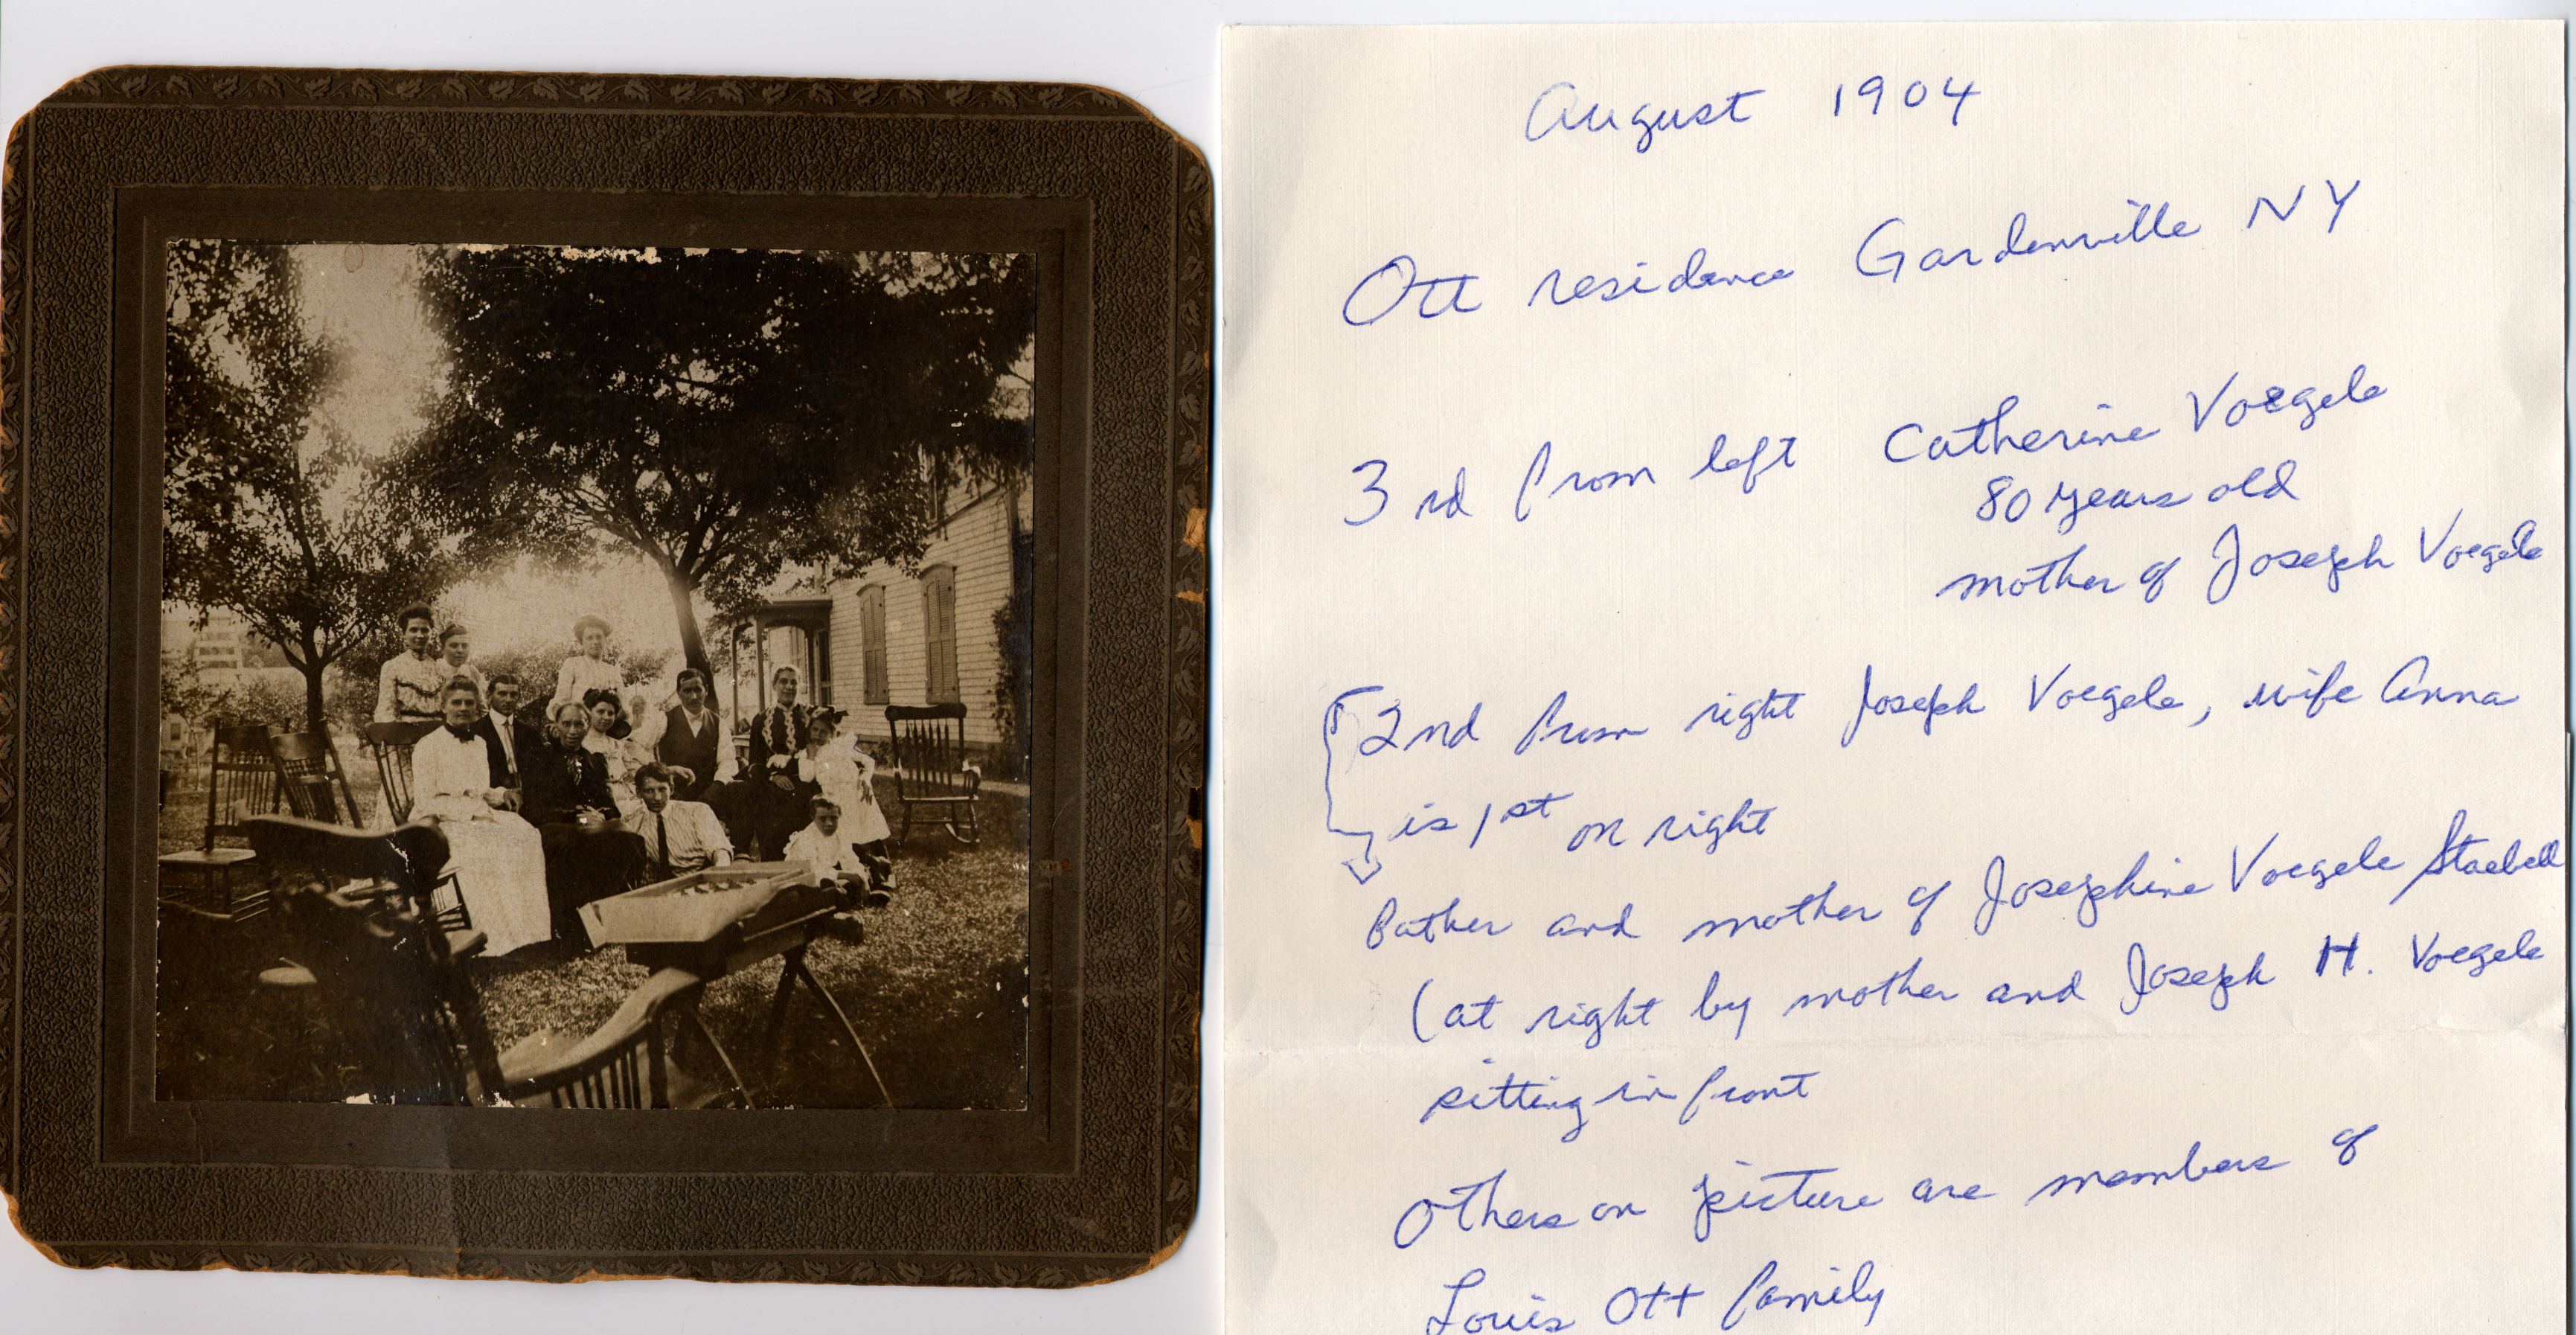 August 1904
Ott residence Gardenville NY
3rd from left Catherine Voegele
80 years old
mother of Joseph Voegele
2nd from right Joseph Voegele, wife Anna
is 1st on right
Father and mother of Josephine Voegele Staebell
(at right by mother and Joseph H. Voegele
sitting in front
Others on picture are members of
Louis Ott family